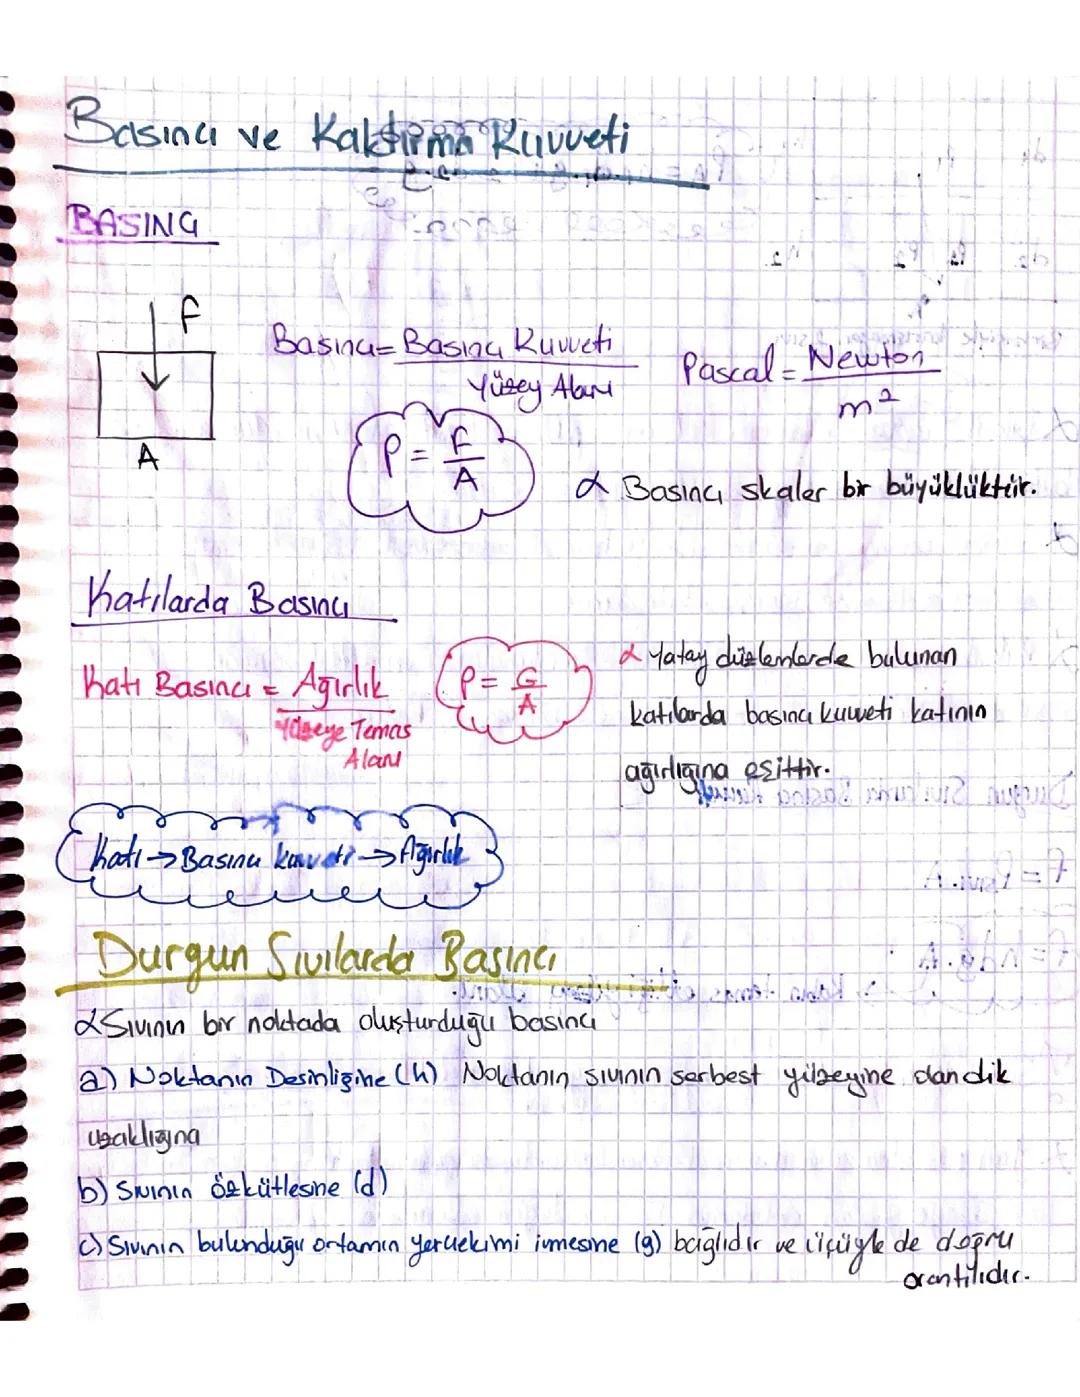 Basınç ve Kaldırma Kuvveti
BASINÇ
F
A
Basınç = Basınç Kuvveti
Yüzey Alanı
Pascal = Newton
m²
P = F
A
α Basınç skaler bir büyüklüktür.
Katılarda Basınç
Katı Basıncı = Ağırlık
Yüzeye Temas
Alanı
P = G
A
α Yatay düzlemlerde bulunan
katılarda basınç kuvveti katının
ağırlığına eşittir.
Katı → Basınç kuvveti → Ağırlık
Durgun Sıvılarda Basınç
α Sıvının bir noktada oluşturduğu basınç
a) Noktanın Desinliğine (h) Noktanın sıvının serbest yüzeyine olan dik
uzaklığına
b) Sıvının özkütlesine (d)
c) Sıvının bulunduğu ortamın yerçekimi ivmesine (g) bağlıdır ve üçüyle de doğru
orantılıdır.